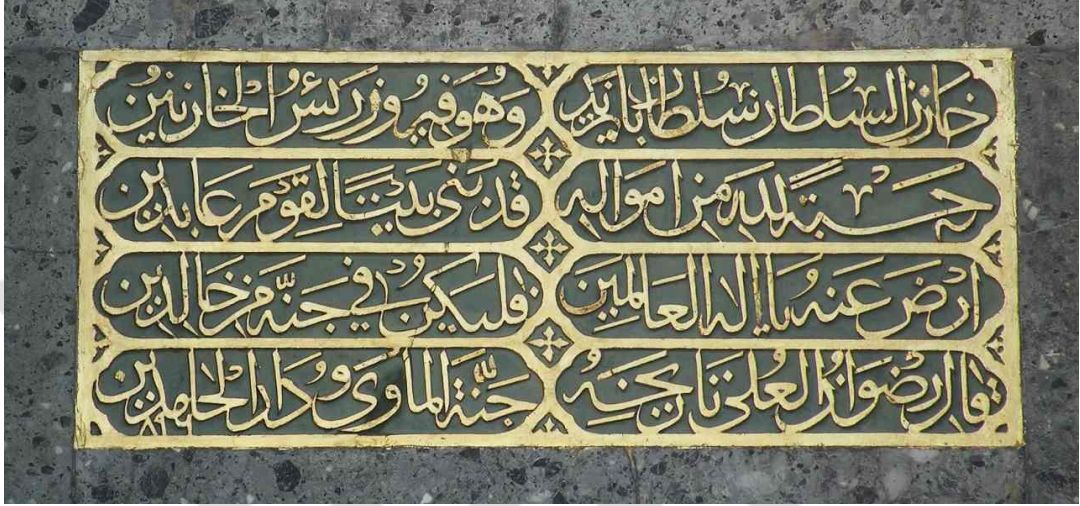 خازن السلطان سلطان بايزيد وهو فيروز رئيس الخازنين
حسبة لله من امواله قد بنى بيتا لقوم عابدين
ارض عنه يا اله العالمين فليكن في جنة من خالدين
قال رضوان العلى تاريخه جنة المأوى ودار الحامدين
٨٩٦